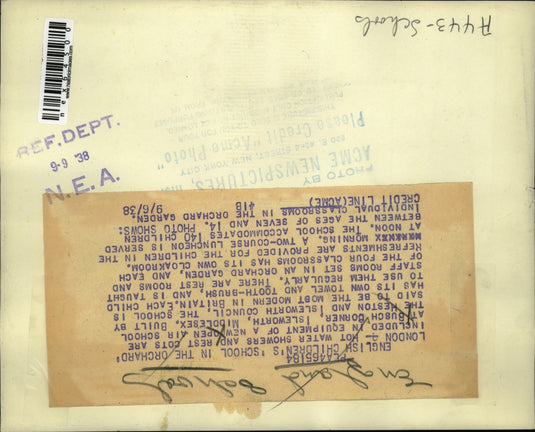 A443-Schools
REF. DEPT.
9-9 '38
N. E. A.
PHOTO BY
ACME NEWSPICTURES, INC.
220 E. 42nd STREET, NEW YORK CITY
Please Credit "Acme Photo"
England School
LA465194
ENGLISH CHILDREN'S 'SCHOOL IN THE ORCHARD'
LONDON -- HOT WATER SHOWERS AND REST COTS ARE
INCLUDED IN EQUIPMENT OF A NEW OPEN AIR SCHOOL
AT BUSCH CORNER, ISLEWORTH, MIDDLESEX. BUILT BY
THE HESTON AND ISLEWORTH COUNCIL, THE SCHOOL IS
SAID TO BE THE MOST MODERN IN BRITAIN. EACH CHILD
HAS ITS OWN TOWEL AND TOOTH-BRUSH, AND IS TAUGHT
TO USE THEM REGULARLY. THERE ARE REST ROOMS AND
STAFF ROOMS SET IN AN ORCHARD GARDEN, AND EACH
OF THE FOUR CLASSROOMS HAS ITS OWN CLOAKROOM.
REFRESHMENTS ARE PROVIDED FOR THE CHILDREN IN THE
MORNING. A TWO-COURSE LUNCHEON IS SERVED
AT NOON. THE SCHOOL ACCOMMODATES 140 CHILDREN
BETWEEN THE AGES OF SEVEN AND 14. PHOTO SHOWS:
INDIVIDUAL CLASSROOMS IN THE ORCHARD GARDEN.
CREDIT LINE (ACME) 41B 9/6/38